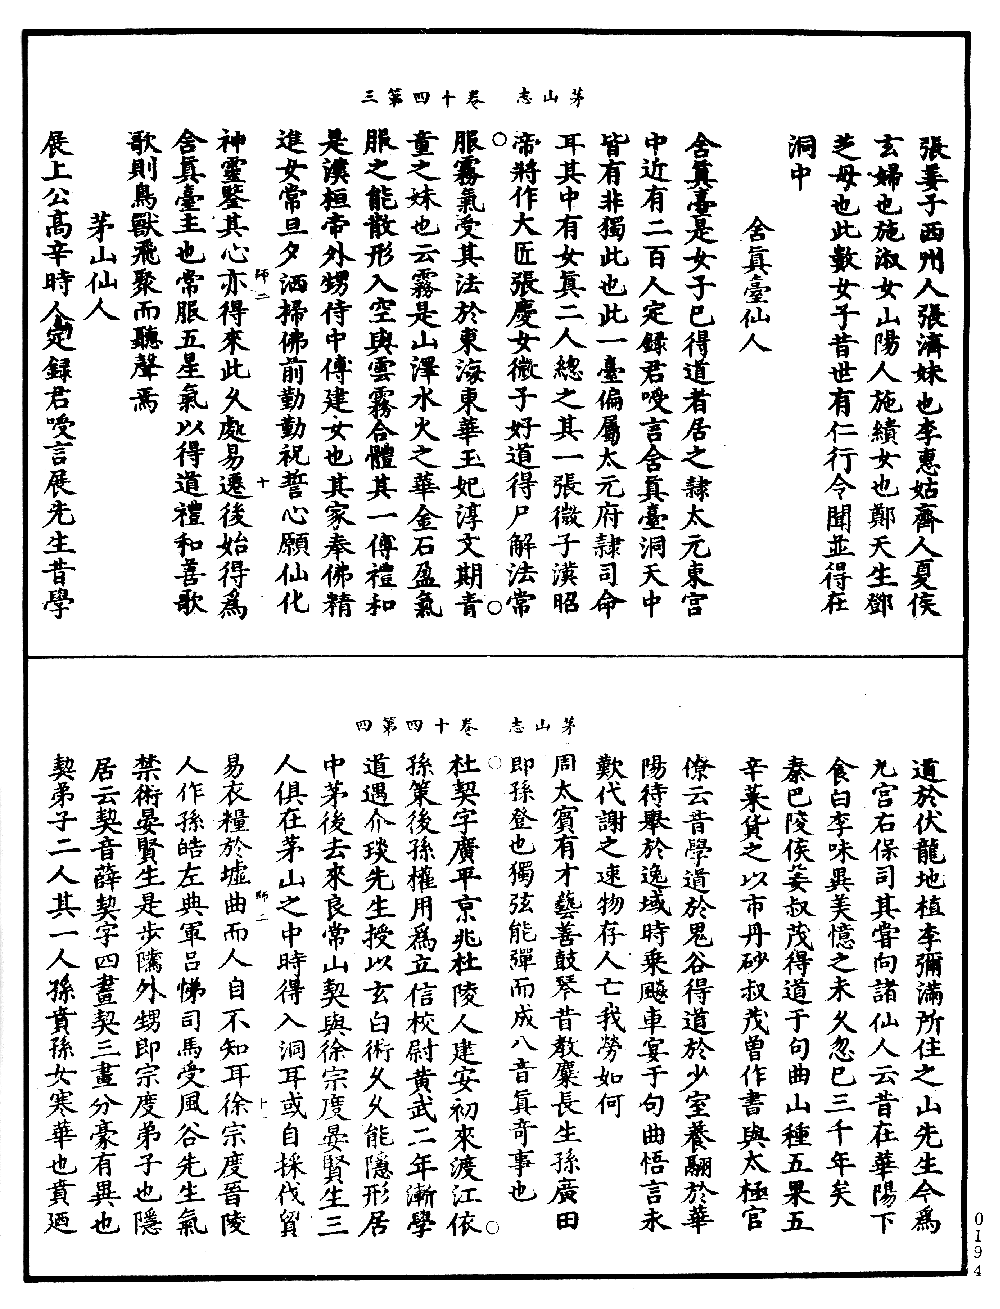 茅山志　卷十四第三
張姜子西州人張濟妹也李惠姑齊人夏侯
玄婦也施淑女山陽人施績女也鄭天生鄧
芝母也此數女子昔世有仁行令聞並得在
洞中
含真臺仙人
含真臺是女子已得道者居之隸太元東宮
中近有二百人定録君喛言含真臺洞天中
皆有非獨此也此一臺偏屬太元府隸司命
耳其中有女真二人總之其一張微子漢昭
帝將作大匠張慶女微子好道得尸解法常
服霧氣受其法於東海東華玉妃淳文期青
童之妹也云霧是山澤水火之華金石盈氣
服之能散形入空與雲霧合體其一傅禮和
是漢桓帝外甥侍中傅建女也其家奉佛精
進女常旦夕洒掃佛前勤勤祝誓心願仙化
師二　十
神靈鑒其心亦得來此久處易遷後始得爲
含真臺主也常服五星氣以得道禮和善歌
歌則鳥獸飛聚而聽聲焉
茅山仙人
展上公高辛時人定録君喛言展先生昔學
茅山志　卷十四第四
道於伏龍地植李彌滿所住之山先生今爲
九宮右保司其嘗向諸仙人云昔在華陽下
食白李味異美憶之未久忽已三千年矣
秦巴陵侯姜叔茂得道于句曲山種五果五
辛菜貨之以市丹砂叔茂曾作書與太極官
僚云昔學道於鬼谷得道於少室養翮於華
陽待舉於逸域時乘飈車宴于句曲悟言永
歎代謝之速物存人亡我勞如何
周太賓有才藝善鼓琴昔教麋長生孫廣田
即孫登也獨弦能彈而成八音真奇事也
杜契字廣平京兆杜陵人建安初來渡江依
孫策後孫權用爲立信校尉黄武二年漸學
道遇介琰先生授以玄白術久久能隱形居
中茅後去來良常山契與徐宗度晏賢生三
人俱在茅山之中時得入洞耳或自採伐貿
師二　十一
易衣糧於墟曲而人自不知耳徐宗度晉陵
人作孫皓左典軍呂悌司馬受風谷先生氣
禁術晏賢生是步隲外甥即宗度弟子也隱
居云契音薛契字四畫契三畫分豪有異也
契弟子二人其一人孫賁孫女寒華也賁廼
0194